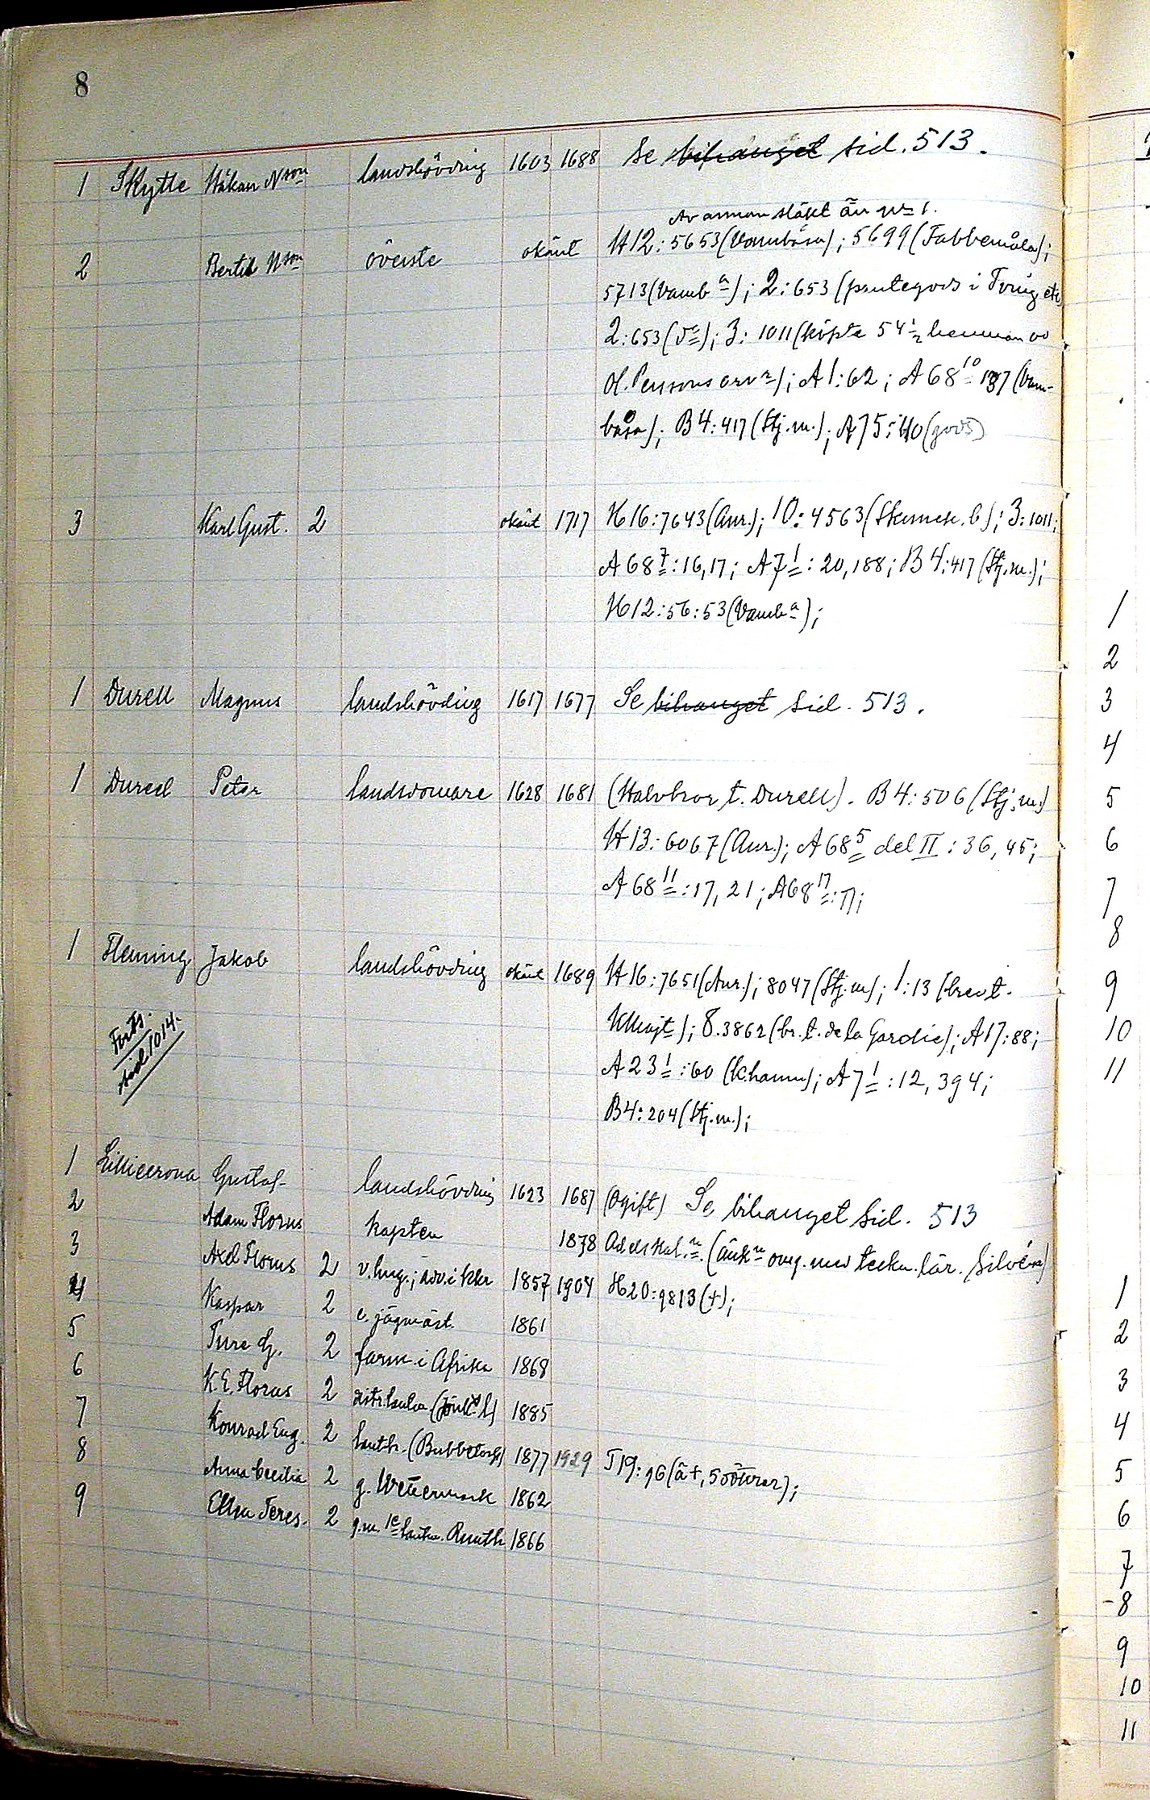 8
1 Skytte Håkan Nson landshövding 1603 1688 Se bihanget sid. 513.
Av annan släkt än nr 1.
2 Bertil Nson överste okänt H12:5653 (Vambåsa); 5699 (Fabbemåla);
5713 (Vamb a); 2:653 (pantegods i Tving etc
2:653 (); 3:1011 (köpte 54 1/2 hemman av
Ol. Perssons arv r); A1:62; A68 10 187 (Vam-
båsa); B4:417 (Stj.m.); A75:40 (gods)
3 Karl Gust. 2 okänt 1717 H16:7643 (Aur.); 10:4563 (); 3:1011;
A68 7:16,17; A7 1:20,188; B4:417 (Stj.m.);
H12:56:53 (Vamb a);
1 Durell Magnus landshövding 1617 1677 Se bihanget sid. 513.
1 Durell Peter landsdomare 1628 1681 (Halvbror t. Durell). B4:506 (Stj.m.)
H13:6067 (Aur.); A68 5 del II:36,45;
A68 11:17,21; A68 17:71;
1 Fleming Jakob landshövding okänt 1689 H16:7651 (Aur.); 8047 (Stj.m); 1:13 (brev t.
K Majt); 8.3862 (br. t. de la Gardie); A17:88;
Forts.
sid. 1014.
A23 1:60 (K.hamn); A7 1:12,394;
B4:204 (Stj.m.);
1 Lilliecrona Gustaf landshövding 1623 1687 (Ogift) Se bihanget Sid. 513
2 Adam Florus kapten 1878 (änk n omg. med teckn. lär. Silvén)
3 Axel Florus 2 v.häg.; adv. i Kkr 1857 1904 H20:9813 (+);
4 Kaspar 2 e. jägmäst. 1861
5 Ture G. 2 farm. i Afrika 1868
6 K.E. Florus 2 1885
7 Konrad Eug. 2 lantbr. (Bubbetorp) 1877 1929 T19:96 (å+, 5 döttrar);
8 Anna Cecilia 2 g. Wettermark 1862
9 Ellen Teres. 2 g.m. 1e lantm. Ruuth 1866
1
2
3
4
5
6
7
8
9
10
11
1
2
3
4
5
6
7
-8
9
10
11